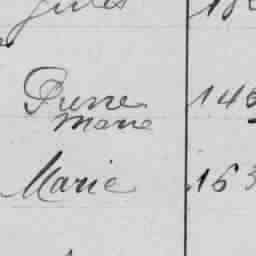 Jules
Pierre 14
Marie
Marie 163